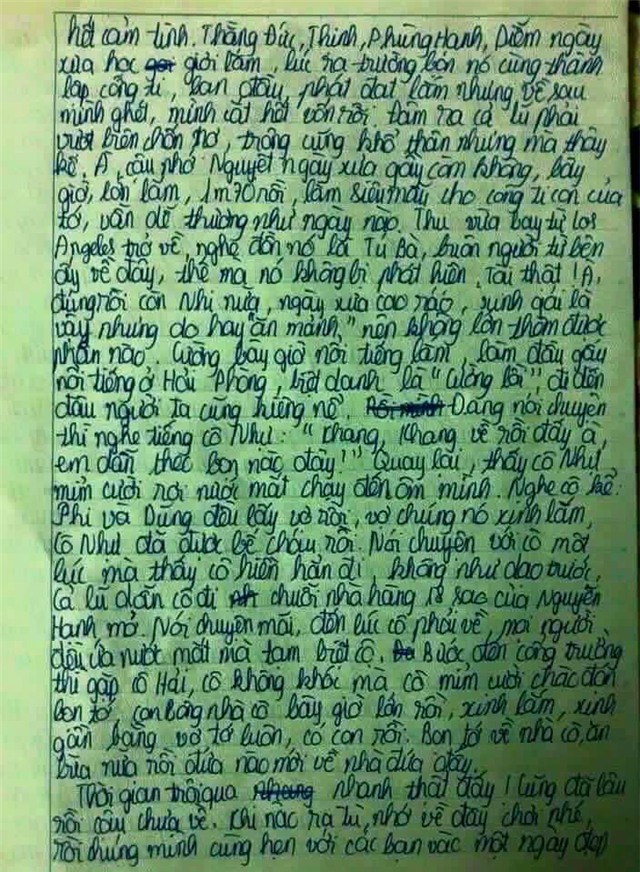 hết cảm tình. Thằng Đức, Thịnh, Phùng Hạnh, Diễm ngày
xưa học giỏi lắm, lúc ra trường bọn nó cùng thành
lập công ti, ban đầu phát đạt lắm nhưng về sau
mình ghét, mình cắt hết vốn rồi. Tâm ra cả lũ phải
vượt biên trốn nợ, trông cũng khổ thân nhưng mà thây
kệ. À, cậu nhớ Nguyệt ngày xưa gầy còm không, bây
giờ, lớn lắm, 1m70 rồi, làm siêu mẫu cho công ti con của
tớ, vẫn dễ thương như ngày nào. Thu vừa bay từ Los
Angeles trở về, nghe đồn nó là Tú Bà, buôn người từ bên
ấy về đây, thế mà nó không bị phát hiện. Tài thật! À,
đúng rồi còn Nhi nữa, ngày xưa cao ráo, xinh gái là
vậy nhưng do hay "ăn mảnh" nên không lớn thêm được
phân nào. Cường bây giờ nổi tiếng lắm, làm đầu gấu
nổi tiếng ở Hải Phòng, biệt danh là "Cường lồi", đi đến
đâu người ta cũng kiêng nể. Đang nói chuyện
thì nghe tiếng cô Như: "Khang, Khang về rồi đấy à,
em dẫn theo bọn nào đây!" Quay lại, thấy cô Như
mỉm cười rơi nước mắt chạy đến ôm mình. Nghe cô kể:
Phi và Dũng đều lấy vợ rồi, vợ chúng nó xinh lắm,
Cô Như đã được bế cháu rồi. Nói chuyện với cô một
lúc mà thấy cô hiền hẳn đi, không như dạo trước.
Cả lũ dẫn cô đi chuỗi nhà hàng sao của Nguyễn
Hạnh mở. Nói chuyện mãi, đến lúc cô phải về, mọi người
đều ứa nước mắt mà tạm biệt cô. Bước đến cổng trường
thì gặp cô Hải, cô không khóc mà cô mỉm cười chào đón
bọn tớ, con Bông nhà cô bây giờ lớn rồi, xinh lắm, xinh
gần bằng vợ tớ luôn, có con rồi. Bọn tớ về nhà cô, ăn
bữa nữa rồi đứa nào mới về nhà đứa đấy.
Thời gian trôi qua nhanh thật đấy! Cũng đã lâu
rồi cậu chưa về. Khi nào ra tù, nhớ về đây chơi nhé,
rồi chúng mình cùng hẹn với các bạn vào một ngày đẹp